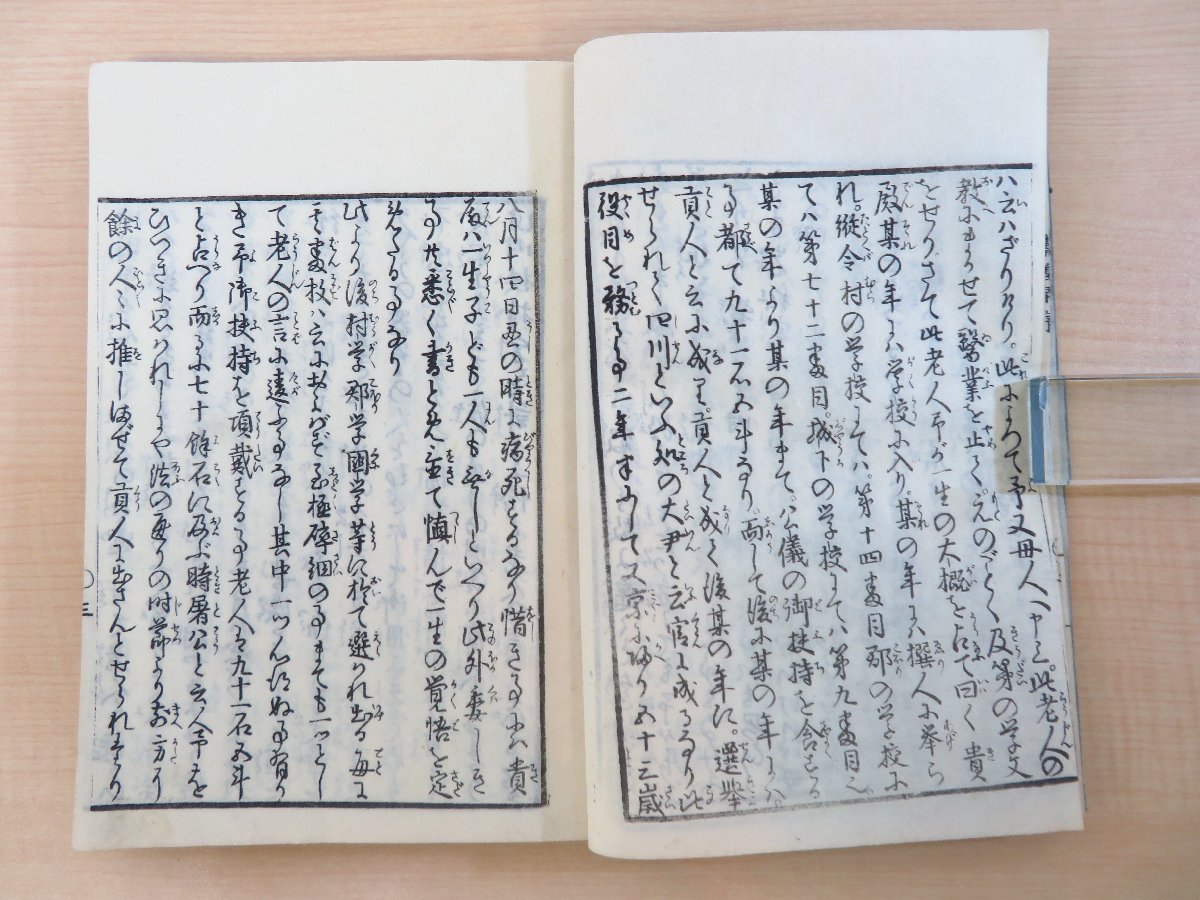 ハ云ハざりけり。此によつて予又母人へ申し。此老人の
教にまかせて醫業を止て。元のごとく及第の学文
をせり。さて此老人予が一生の大概を占て曰く貴
殿某の年にハ学校に入り。某の年にハ撰人に挙ら
れ。縦令村の学校にてハ。第十四番目郡の学校に
てハ第七十二番目。城下の学校にてハ第九番目也
某の年より某の年まで。公儀の御扶持を含する
事都て九十一石五斗なり。而して後に某の年にハ
貢人と云に成り。貢人と成て後某の年に。選挙
せられて四川といふ処の大尹と云官に成るなり此
役目を務る事二年半にして又家に帰り五十三歳
八月十四日丑の時に病死するなり惜き事にハ貴
殿ハ一生子ども一人もなしといへり此外委しき
事共悉く書とめ置て慎んで一生の覚悟を定
めたる事なり
此より後村学郡学國学等に於て選れ出る毎に
其番数ハ云におよばず至極碎細の事までも一ツとし
て老人の言に違ふ事なし其中一ツ心得ぬ事有り
き予御扶持を頂戴する事老人ハ九十一石五斗
と占へり而るに七十餘石に及ぶ時屠公と云人予を
ひつきに思ハれしにや法の通りの時節より前方に
餘の人々に推しまぜて貢人に出さんとせられ
〇三